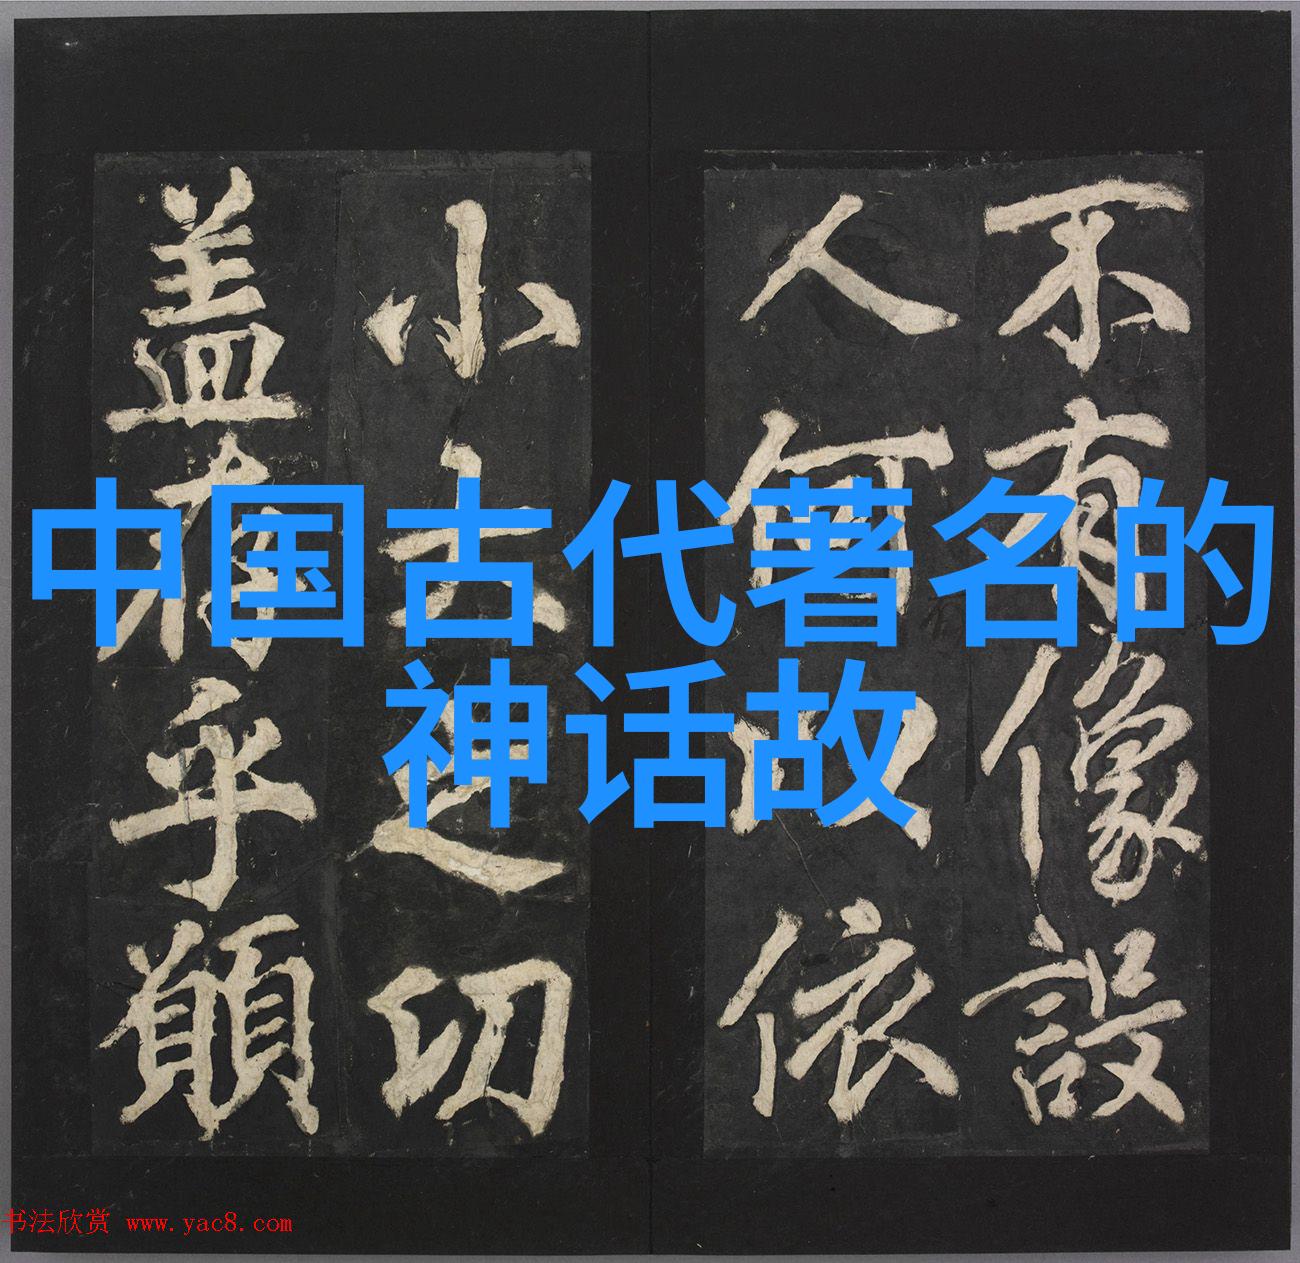 中国古代著名的
神话故
不有像設
人何以依
小大之切
盖有乎顛
书法欣赏 www.yac8.com